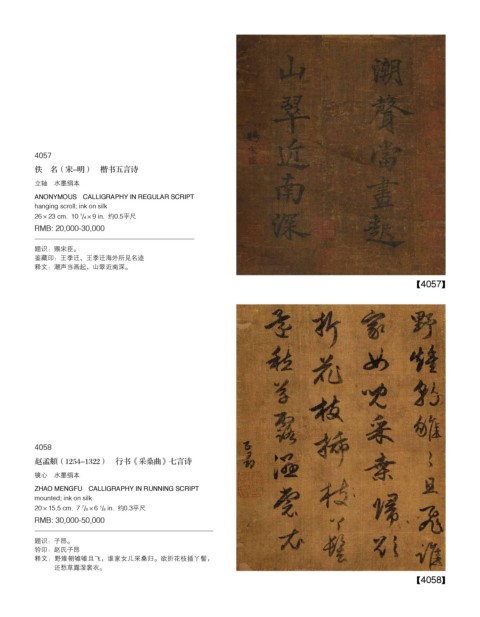 4057
佚　名（宋-明）　楷书五言诗
立轴　水墨绢本
ANONYMOUS　CALLIGRAPHY IN REGULAR SCRIPT
hanging scroll; ink on silk
26×23 cm.  10 1/4×9 in.  约0.5平尺
RMB: 20,000-30,000
题识：赐宋臣。
鉴藏印：王季迁、王季迁海外所见名迹
释文：潮声当画起，山翠近南深。
潮聲當晝起
山翠近南深
【4057】
4058
赵孟頫（1254-1322）　行书《采桑曲》七言诗
镜心　水墨绢本
ZHAO MENGFU　CALLIGRAPHY IN RUNNING SCRIPT
mounted; ink on silk
20×15.5 cm.  7 7/8×6 1/8 in.  约0.3平尺
RMB: 30,000-50,000
题识：子昂。
钤印：赵氏子昂
释文：野雉朝雊雊且飞，谁家女儿采桑归。欲折花枝插丫髻，
还愁草露湿裳衣。
野雉朝雊〻且飛誰
家女兒采桑歸欲
折花枝插枝丫髻
還愁草露濕裳衣
子昂
【4058】